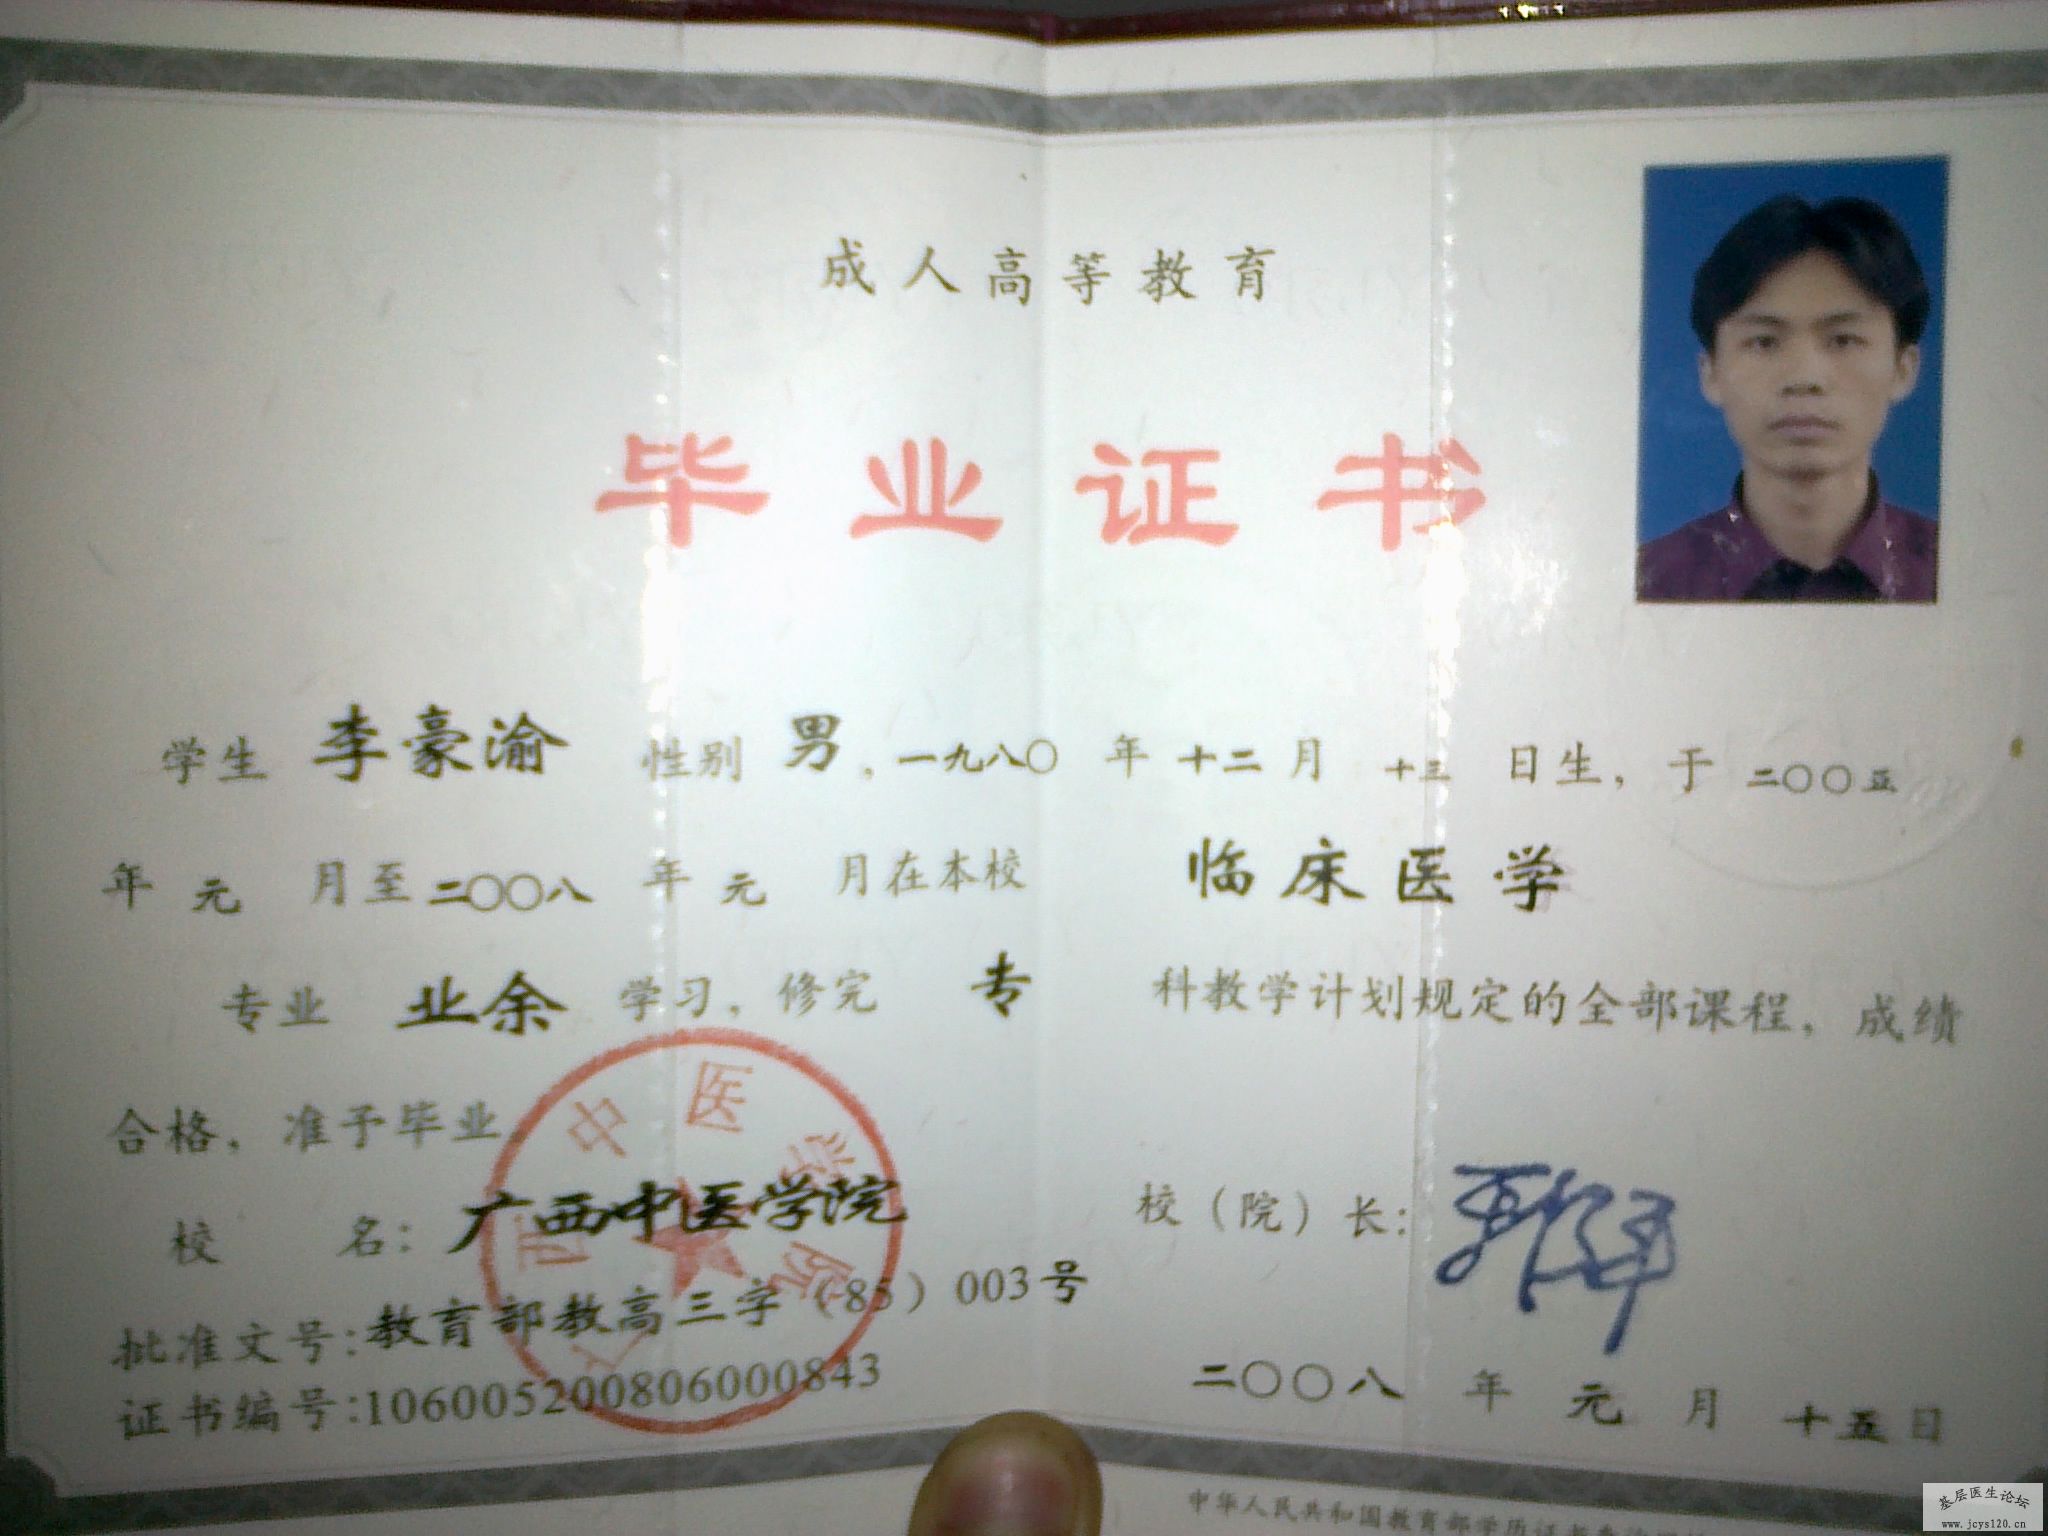 成人高等教育
毕业证书
学生 李豪渝 性别 男，一九八〇 年 十二 月 十三 日生，于 二〇〇五
年 元 月至 二〇〇八 年 元 月在本校 临床医学
专业 业余 学习，修完 专 科教学计划规定的全部课程，成绩
合格，准予毕业
校 名：广西中医学院 校（院）长：
批准文号：教育部教高三字（85）003号
证书编号：106005200806000843 二〇〇八 年 元 月 十五 日
中华人民共和国教育部学历证书查询
广西中医学院
基层医生论坛
www.jcys120.cn